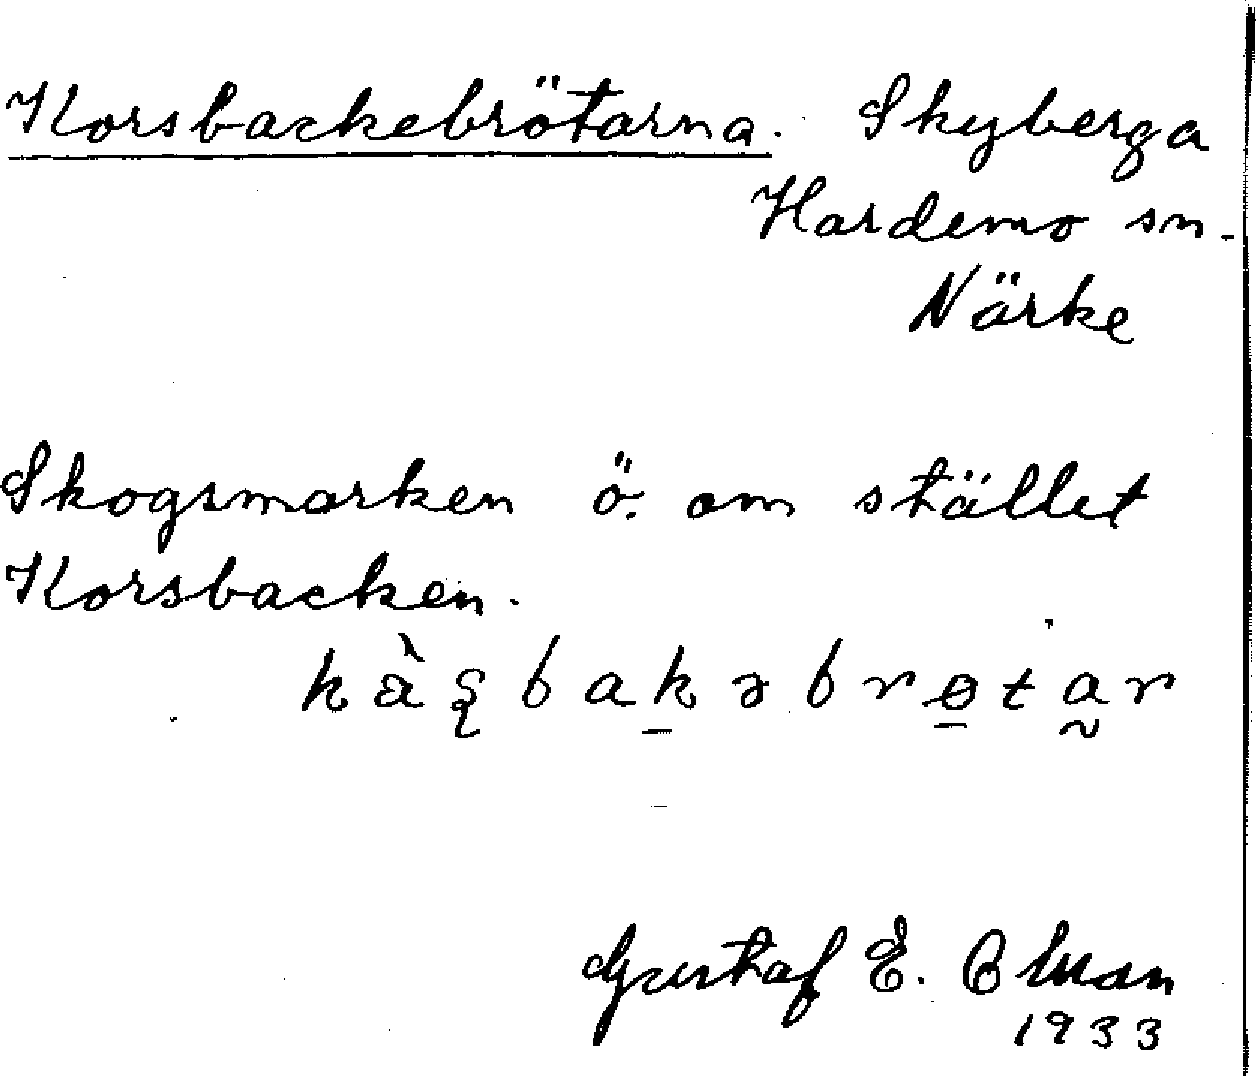 Korsbackebrötarna. Skyberga
Hardemo sn.
Närke
Skogsmarken ö. om stället
Korsbacken.
kàꞩbak̠əbrɵ̠ta̰r
Gustaf E. Olsson
1933